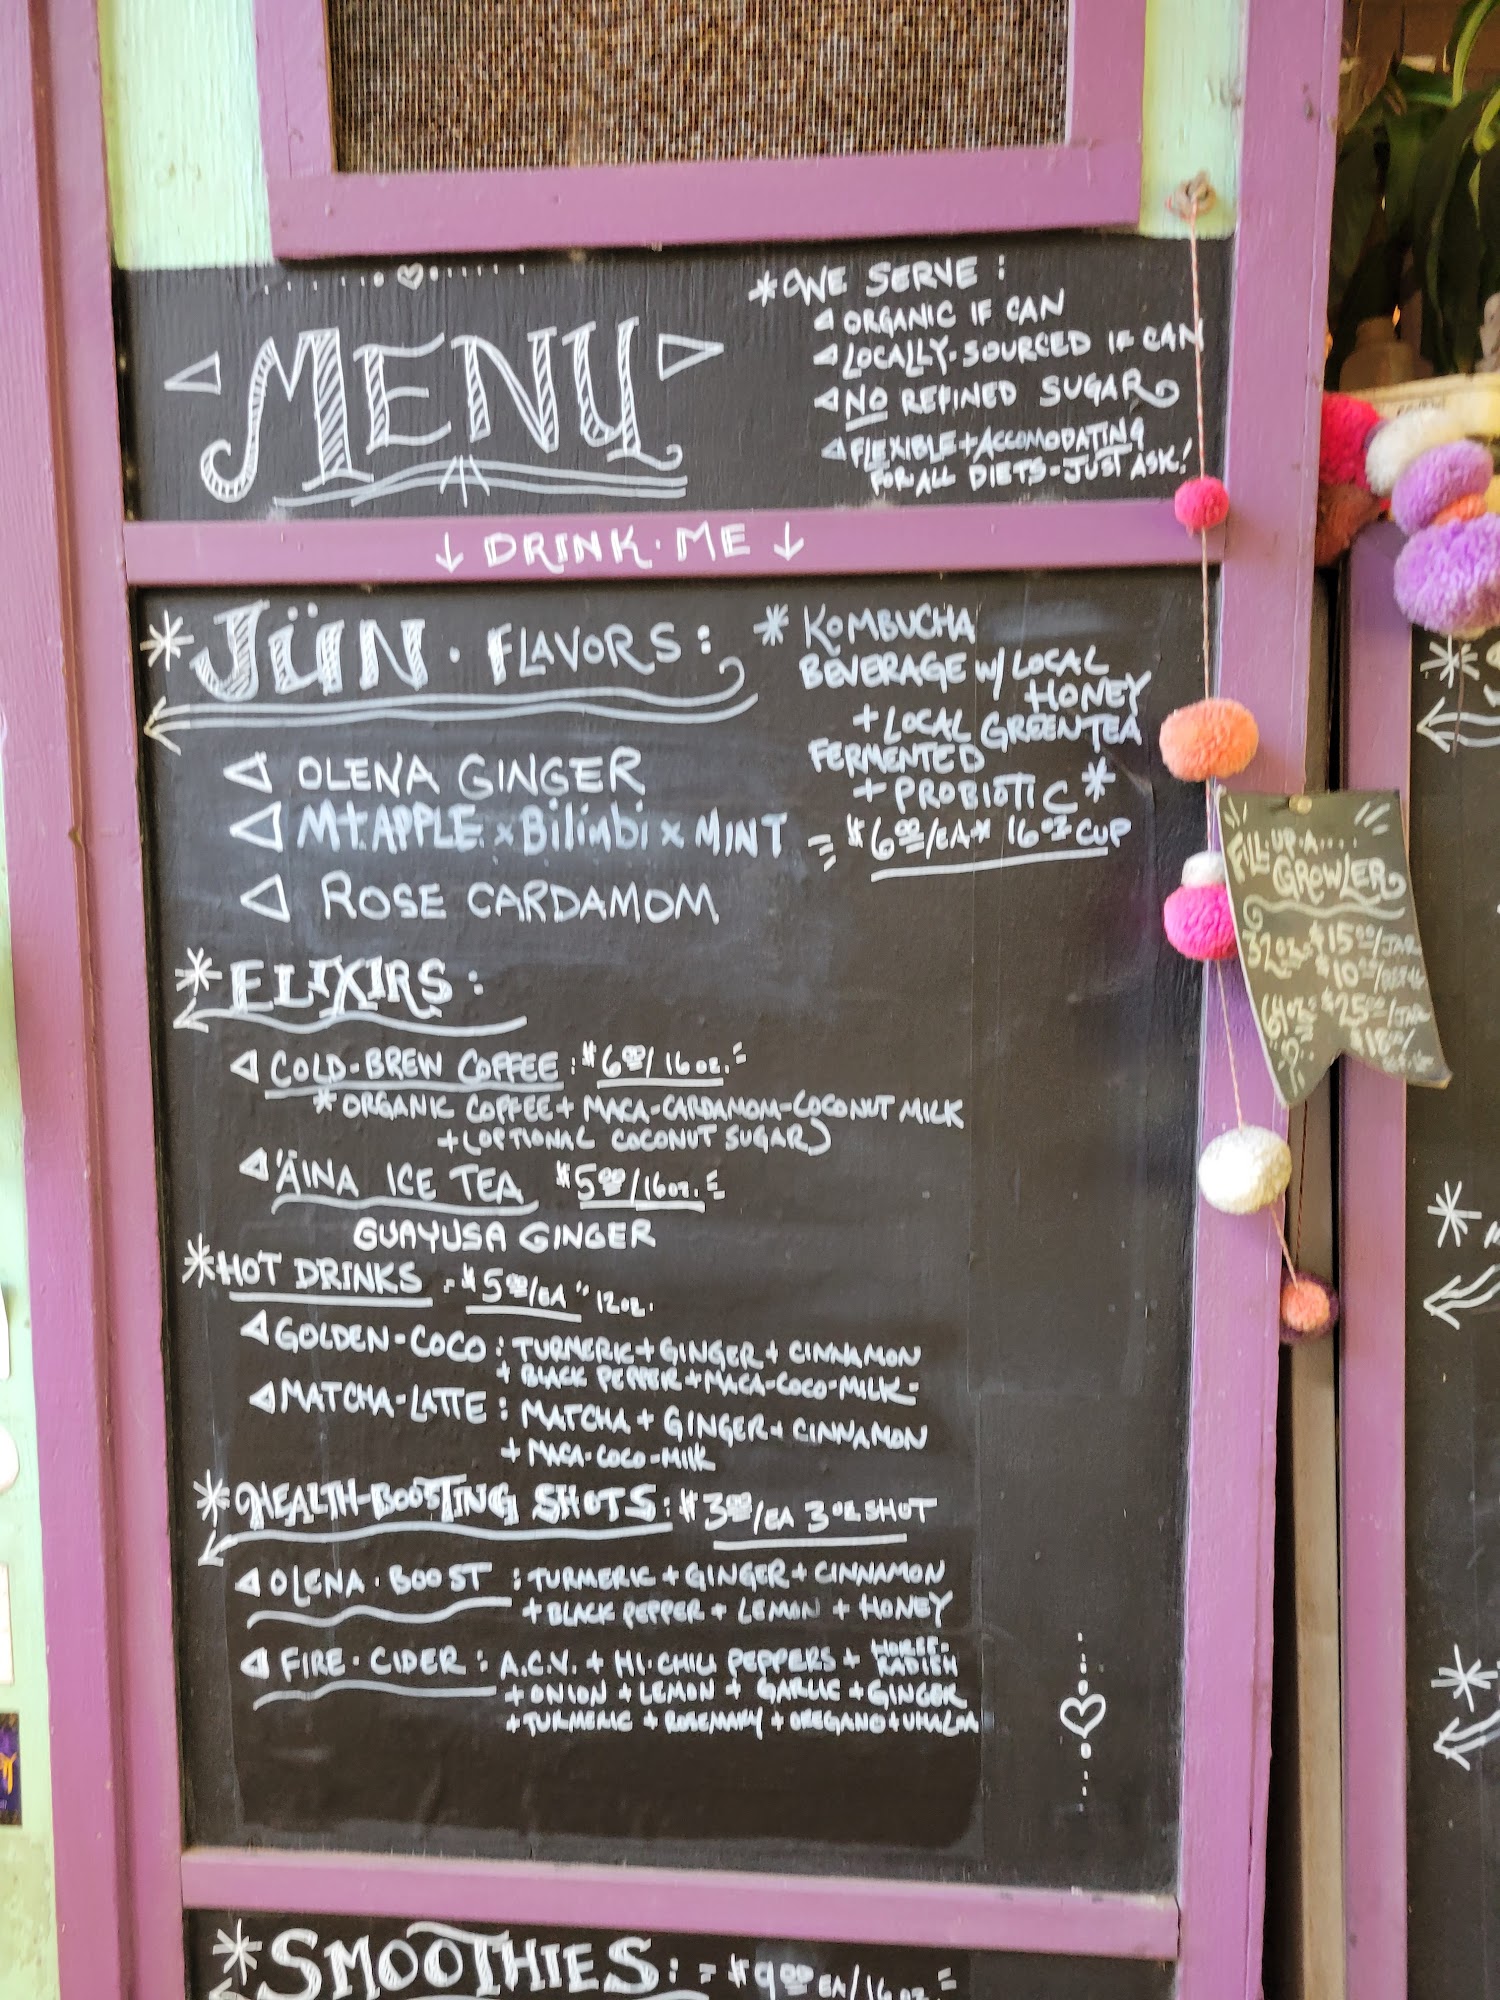 MENU
*WE SERVE:
ORGANIC IF CAN
LOCALLY-SOURCED IF CAN
NO REFINED SUGAR
FLEXIBLE + ACCOMODATING
FOR ALL DIETS - JUST ASK!
↓ DRINK·ME ↓
*JÜN·FLAVORS:
* KOMBUCHA
BEVERAGE W/ LOCAL
HONEY
+ LOCAL GREEN TEA
FERMENTED
+ PROBIOTIC *
OLENA GINGER
Mt.APPLE x Bilimbi x MINT = $6.00/EA * 16 OZ CUP
ROSE CARDAMOM
*ELIXIRS:
COLD-BREW COFFEE: $6.00/16oz.
*ORGANIC COFFEE + MACA-CARDAMOM-COCONUT MILK
+ (OPTIONAL COCONUT SUGAR)
'ĀINA ICE TEA $5.00/16oz.
GUAYUSA GINGER
*HOT DRINKS - $5.00/EA " 12oz.
GOLDEN-COCO: TURMERIC + GINGER + CINNAMON
+ BLACK PEPPER + MACA-COCO-MILK-
MATCHA-LATTE: MATCHA + GINGER + CINNAMON
+ MACA-COCO-MILK
*HEALTH-BOOSTING SHOTS: $3.00/EA 3 OZ SHOT
OLENA·BOOST: TURMERIC + GINGER + CINNAMON
+ BLACK PEPPER + LEMON + HONEY
FIRE·CIDER: A.C.V. + HI·CHILI PEPPERS + HORSE-
RADISH
+ ONION + LEMON + GARLIC + GINGER
+ TURMERIC + ROSEMARY + OREGANO +
*SMOOTHIES: = $9.00 EA/16 OZ =
FILL·UP·A....
GROWLER
32oz: $15.00/JAR
$10.00/
64oz: $25.00/JAR
$18.00/